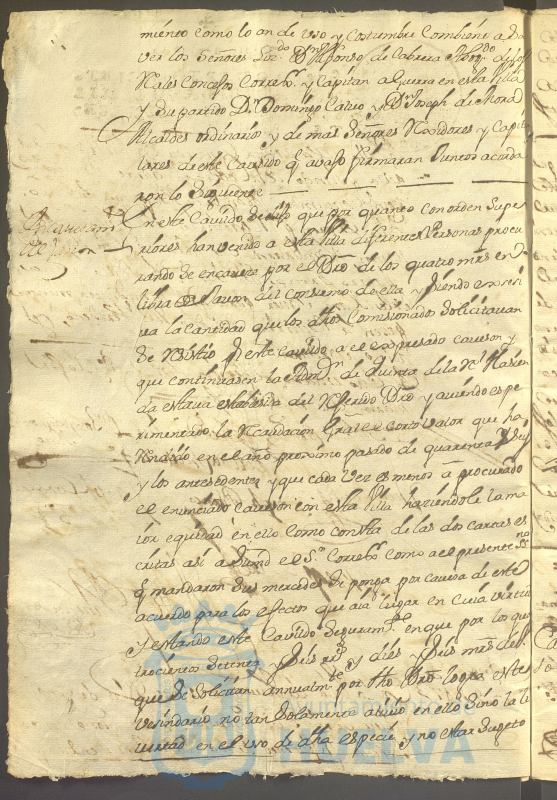 miento como lo an de uso y costumbre combiene a sa
ver los Señores Lizdo Dn Alfonso de Cabrera Abogdo de los
Rales Concejos Correxr y Capitan a Guerra en esta Villa
y su partido Dn Domingo Calero y Dn Joseph de Mora
Alcaldes ordinarios y demas Señores Rexidores y Capitu
lares de este Cavildo q avajo firmaran Juntos acorda
ron lo siguiente
En este Cavildo se dijo que por quanto con orden supe
riores han venido a esta Villa diferentes Personas procu
rando se encaveze por el Dro de los quatro mrs en
libra de Javon del consumo de ella y siendo excesi
va la cantidad que los dhos Comisionados solicitavan
Se Resistio este Cavildo a el expresado caveson y
que continuasen la Admon de quenta de la Rl Hazien
da estava establesida del Referido Dro y aviendo espe
rimentado la Recaudacion Gral el corto valor que ha
Rendido en el año proximo pasado de quarenta y seis
y los antesedentes y que cada vez es menos a procurado
el enunciado caveson con esta Villa haziendole la ma
ior equidad en ello como consta de las dos cartas es
critas asi a Sumd el Sr Correxr como a el presente Sno
q mandaron sus mercedes se ponga por caveza de este
acuerdo para los efectos que aia lugar en cuia virtud
y estando este Cavildo seguramte en que por los qua
trocientos setenta y seis rrs y dies y seis mrs de vn
que se solicitan annualmte por dho Dro logra este
vesindario no tan solamente alivio en ello sino la li
vertad en el uso de dha especie y no estar sugeto
Ayuntamiento de
HUELVA